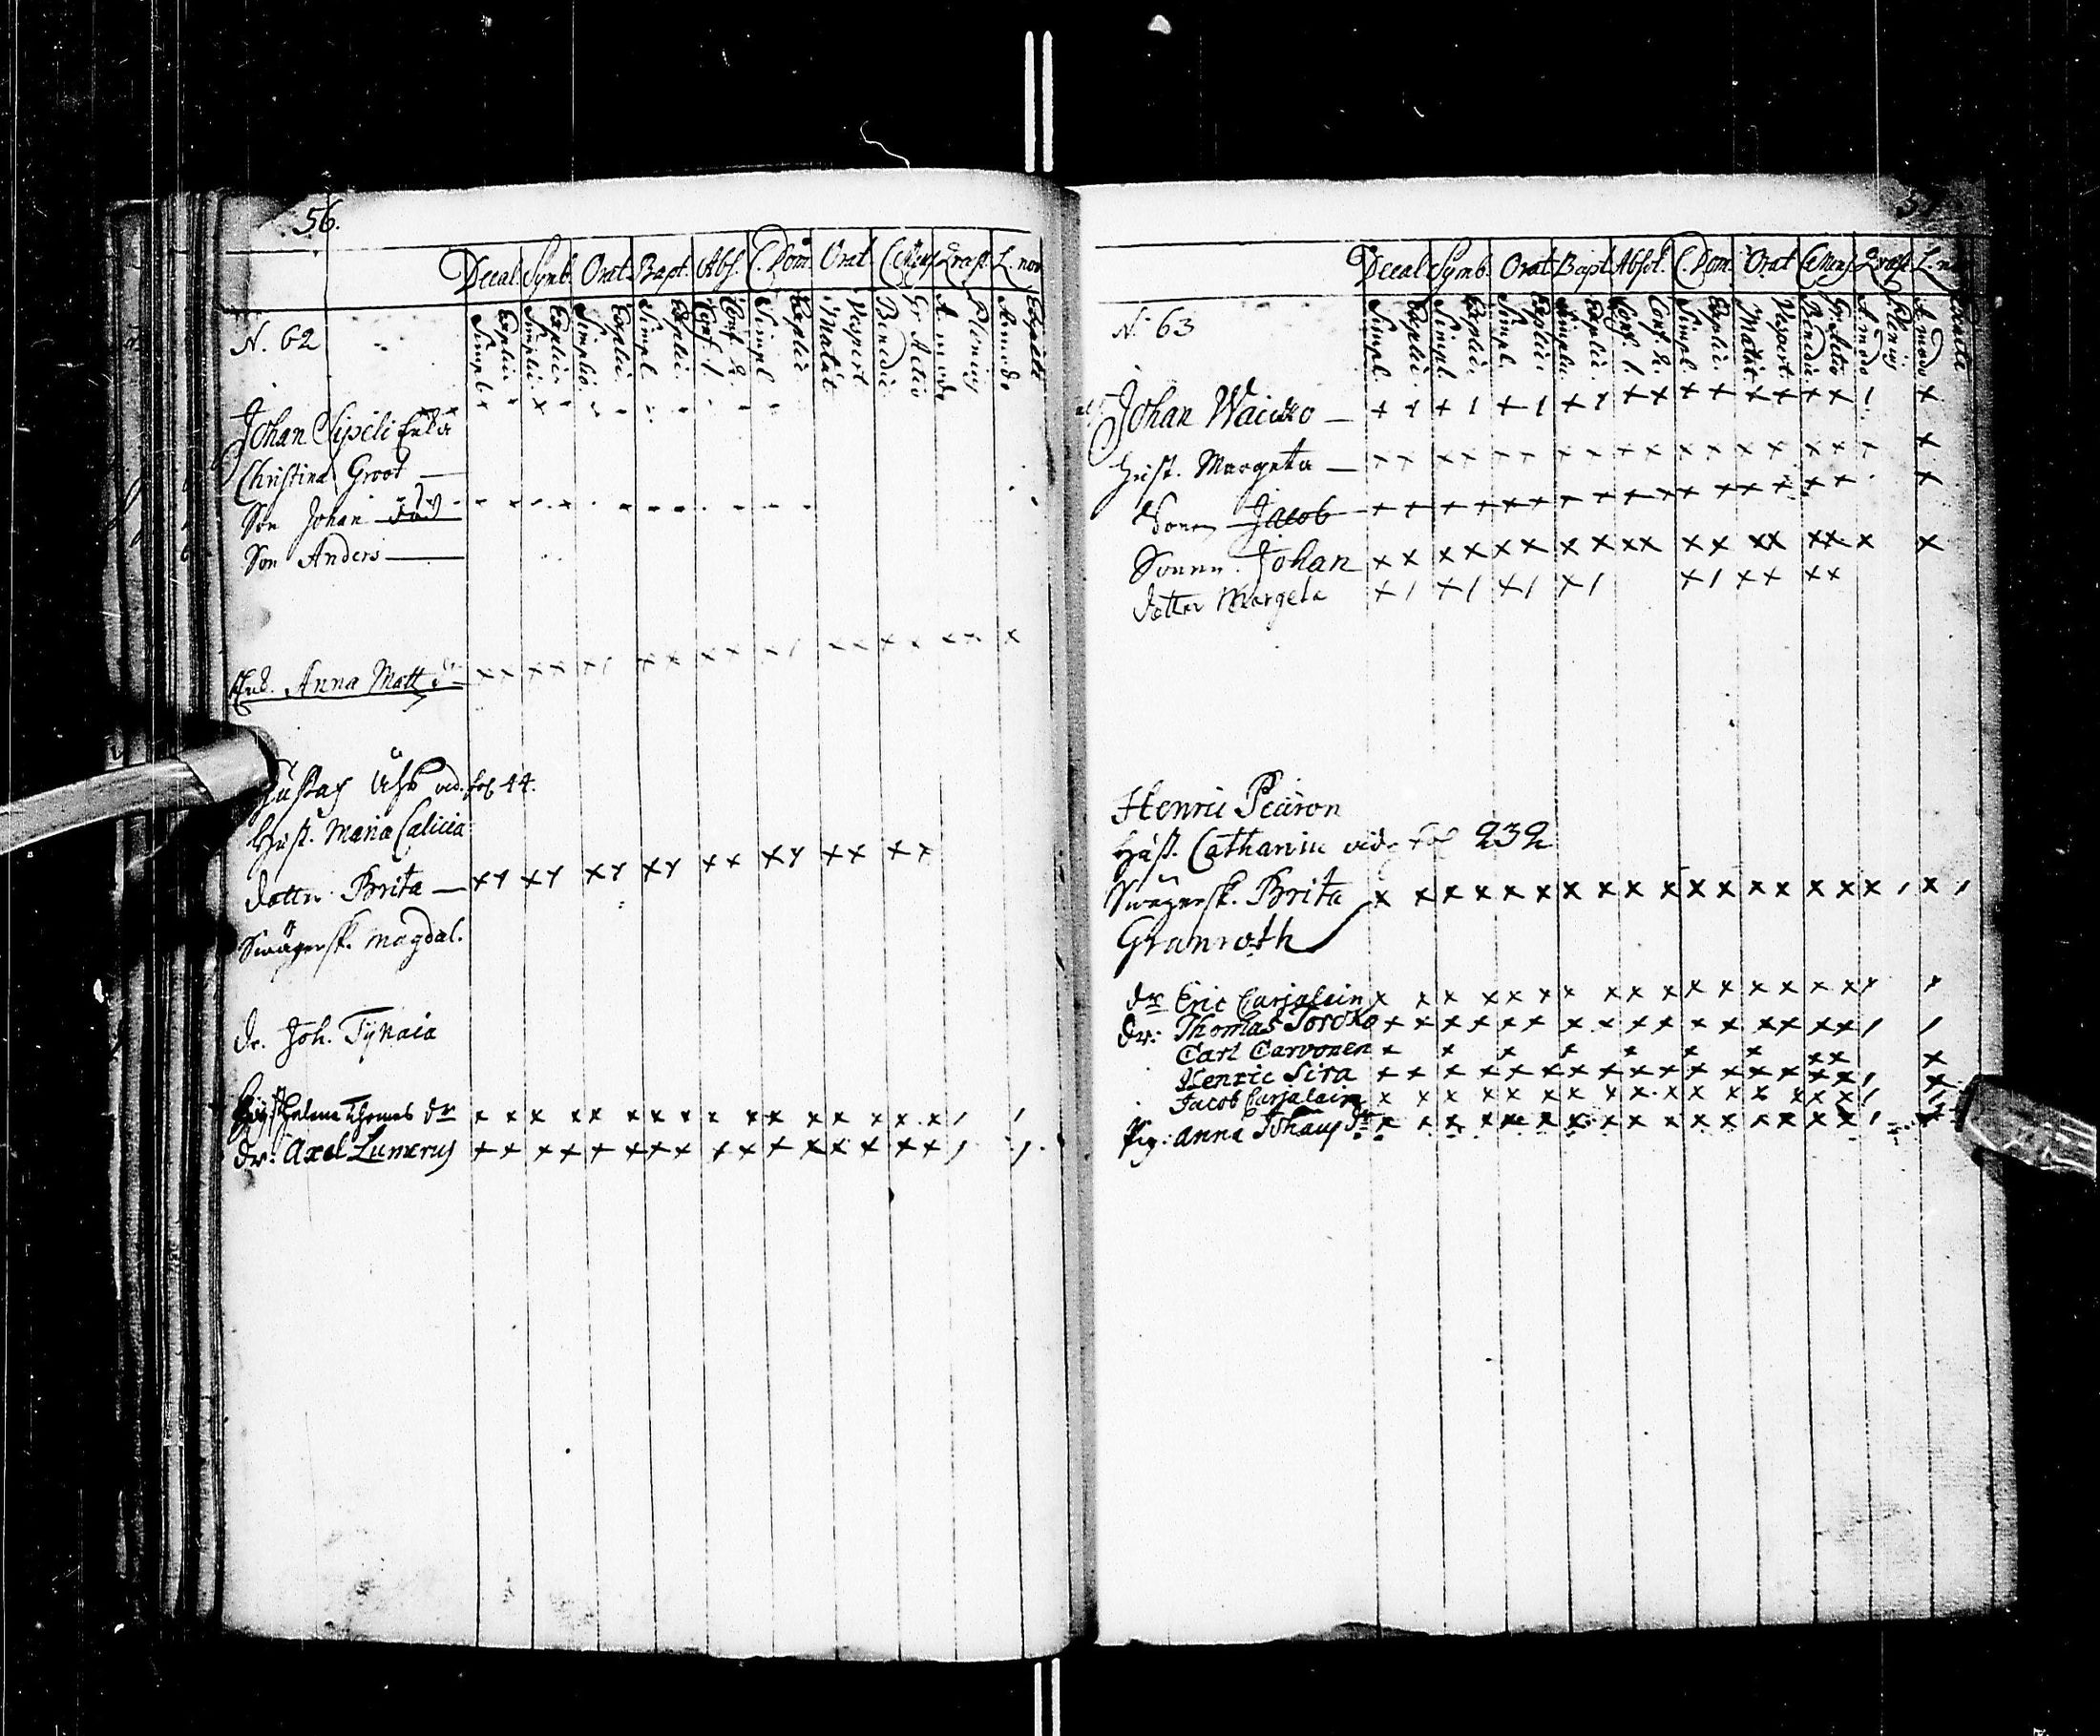 56.
Decal. Symb. Orat. Bapt. Abs. C. Dom. Orat C. Mens. L. nov
N. 62
Simpl. Explic. Simplic. Explic. Simplic. Explic. Simpl. Explic. Conf. 1. Conf. 2. Simpl. Explic. Matut. Vespert. Benedic. Gr. Actio A modo Plenius A modo
Johan Sipeli Enka
Christina Groot
Son Johan
Son Anders
Enk. Anna Matt. dr
Gustaf vid. fol 44.
Hust. Maria Calicia
dotter Brita
Swägersk. Magdal.
dr. Joh. Tynaia
Hust Helena Thomas dr
dr: Axel Lunerus
57
Decal. Symb. Orat. Bapt. Absol. C. Dom. Orat C. Mens. L.
N. 63
Simpl. Explic. Simpl. Explic. Simpl. Explic. Simplic. Explic. Conf. 1. Conf. 2. Simpl. Explic. Matut. Vespert. Benedic. Gr. Actio A modo Plenius A modo
Johan Waicko
Hust. Margeta
Sonen Jacob
Sonen Johan
dotter Margeta
Henric Pearon
Hust. Catharin vid. fol 232
Swägersk. Brita
Granroth
dr Eric Carjalain
dr: Thomas Torcko
Carl Carvonen
Henric Sira
Jacob Carjalain
Pig: Anna Johans dr